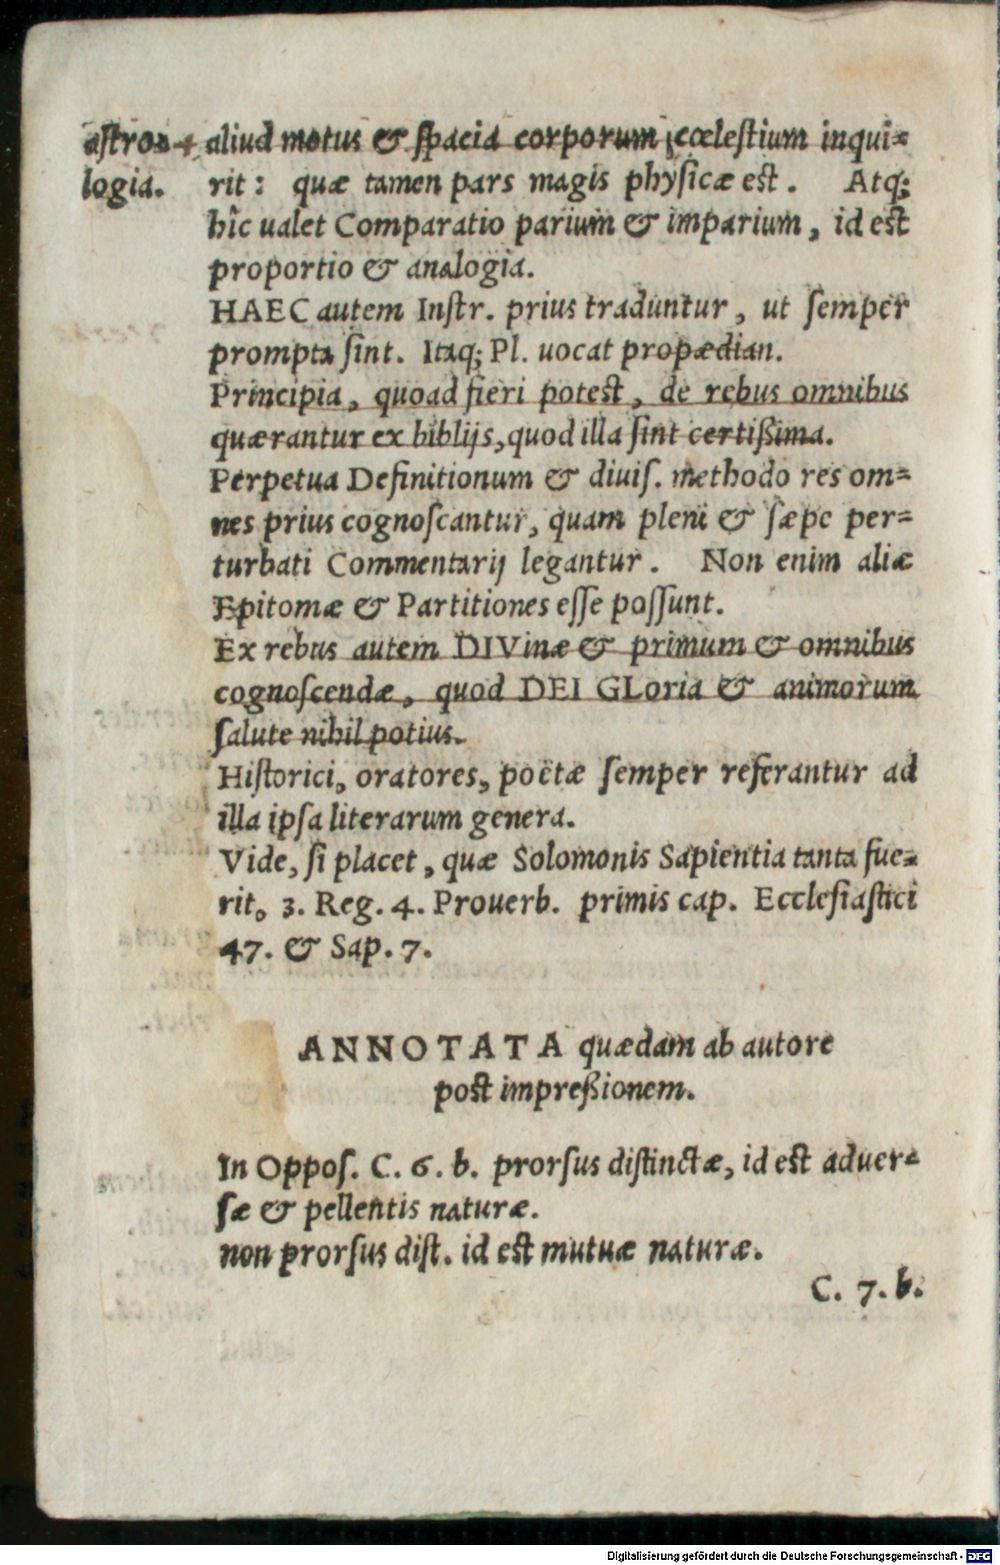 astro=
logia.
aliud motus & ſpacia corporum cœleſtium inqui=
rit: quæ tamen pars magis phyſicæ est. Atq;
hîc ualet Comparatio parium & imparium, id est
proportio & analogia.
HAEC autem Inſtr. prius traduntur, ut ſemper
prompta ſint. Itaq; Pl. uocat propædian.
Principia, quoad fieri potest, de rebus omnibus
quærantur ex biblijs, quod illa ſint certißima.
Perpetua Definitionum & diuiſ. methodo res om=
nes prius cognoſcantur, quam pleni & ſæpe per=
turbati Commentarij legantur. Non enim aliæ
Epitomæ & Partitiones eſſe poſſunt.
Ex rebus autem DIVinæ & primum & omnibus
cognoſcendæ, quod DEI GLoria & animorum
ſalute nihil potius.
Hiſtorici, oratores, poëtæ ſemper referantur ad
illa ipſa literarum genera.
Vide, ſi placet, quæ Solomonis Sapientia tanta fue=
rit, 3. Reg. 4. Prouerb. primis cap. Eccleſiaſtici
47. & Sap. 7.
ANNOTATA quædam ab autore
post impreßionem.
In Oppoſ. C. 6. b. prorſus diſtinctæ, id est aduer=
ſæ & pellentis naturæ.
non prorſus diſt. id est mutuæ naturæ.
C. 7. b.
Digitalisierung gefördert durch die Deutsche Forschungsgemeinschaft - DFG